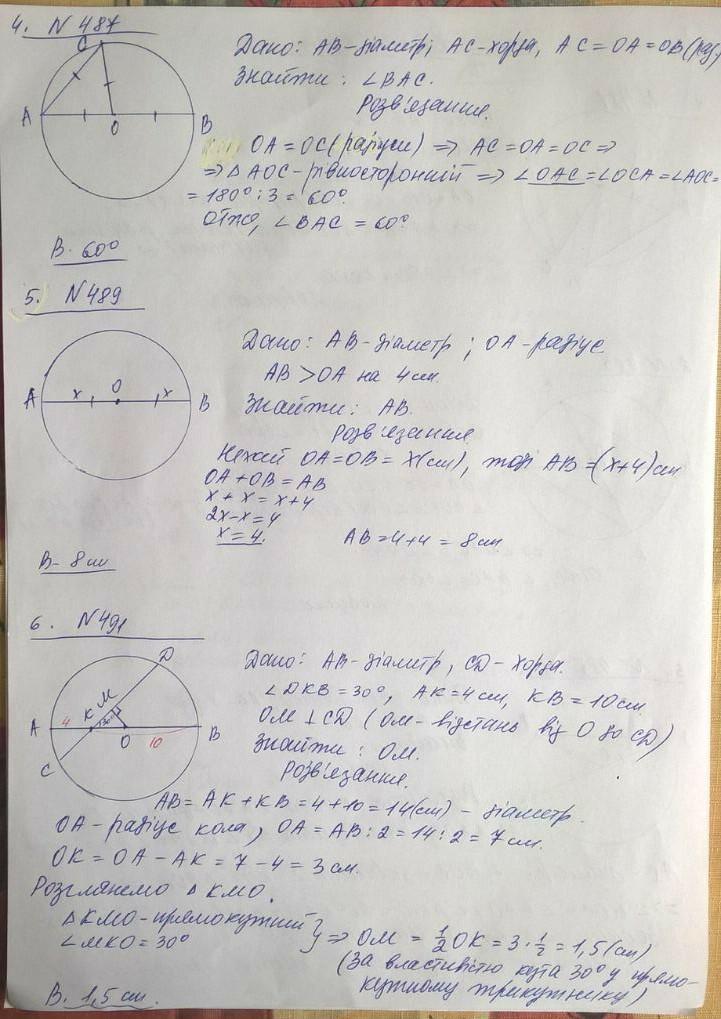 4. N 487
C
A
O
B
Дано: AB-діаметр; AC-хорда, AC=OA=OB (рад.)
Знайти: ∠BAC.
Розв'язання.
OA=OC (радіуси) => AC=OA=OC =>
=> △AOC-рівносторонній => ∠OAC=∠OCA=∠AOC=
=180°:3=60°
Отже, ∠BAC=60°
В. 60°
5. N489
A
x
O
x
B
Дано: AB-діаметр; OA-радіус
AB>OA на 4см.
Знайти: AB.
Розв'язання
Нехай OA=OB=x(см), тоді AB=(x+4)см
OA+OB=AB
x+x=x+4
2x-x=4
x=4.
AB=4+4=8см
В- 8см
6. N491
D
M
A
4
K
30°
O
10
B
C
Дано: AB-діаметр, CD-хорда.
∠DKB=30°, AK=4см, KB=10см
OM⊥CD (OM-відстань від O до CD)
Знайти: OM.
Розв'язання.
AB=AK+KB=4+10=14(см) - діаметр.
OA-радіус кола, OA=AB:2=14:2=7см.
OK=OA-AK=7-4=3см.
Розглянемо △KMO.
△KMO-прямокутний
∠MKO=30°
} => OM = 1/2 OK = 3·1/2 = 1,5(см)
(За властивістю кута 30° у прямо-
кутному трикутнику)
В. 1,5 см.